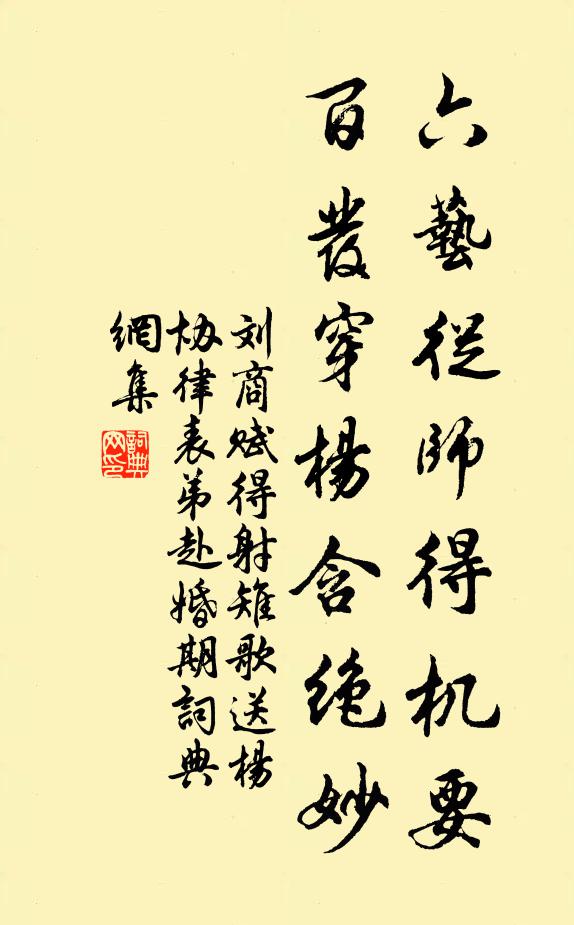 六藝從師得机要
百發穿楊含绝妙
刘商赋得射雉歌送楊
协律表弟赴婚期詞典
網集
詞典
网印